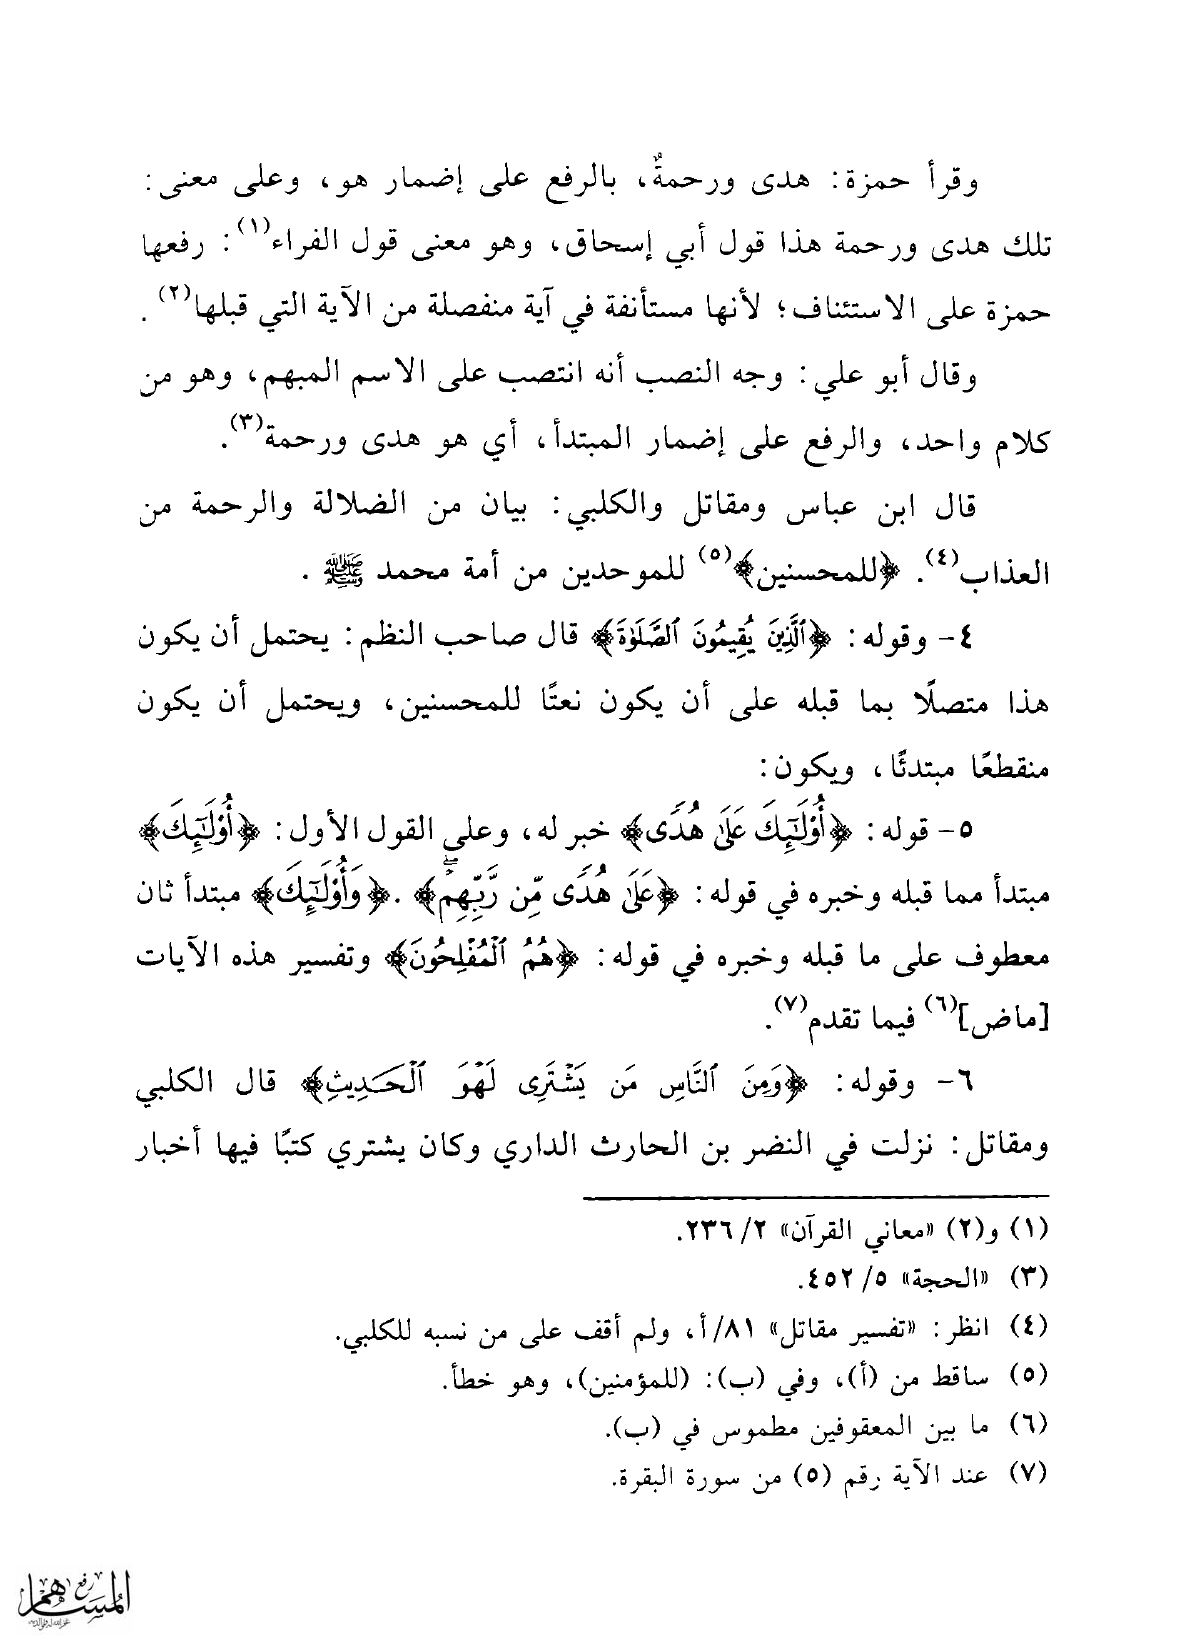 وقرأ حمزة: هدى ورحمةٌ، بالرفع على إضمار هو، وعلى معنى:
تلك هدى ورحمة هذا قول أبي إسحاق، وهو معنى قول الفراء(١): رفعها
حمزة على الاستئناف؛ لأنها مستأنفة في آية منفصلة من الآية التي قبلها(٢).
وقال أبو علي: وجه النصب أنه انتصب على الاسم المبهم، وهو من
كلام واحد، والرفع على إضمار المبتدأ، أي هو هدى ورحمة(٣).
قال ابن عباس ومقاتل والكلبي: بيان من الضلالة والرحمة من
العذاب(٤). ﴿للمحسنين﴾(٥) للموحدين من أمة محمد ﷺ .
٤- وقوله: ﴿ٱلَّذِينَ يُقِيمُونَ ٱلصَّلَوٰةَ﴾ قال صاحب النظم: يحتمل أن يكون
هذا متصلًا بما قبله على أن يكون نعتًا للمحسنين، ويحتمل أن يكون
منقطعًا مبتدئًا، ويكون:
٥- قوله: ﴿أُوْلَٰٓئِكَ عَلَىٰ هُدًى﴾ خبر له، وعلى القول الأول: ﴿أُوْلَٰٓئِكَ﴾
مبتدأ مما قبله وخبره في قوله: ﴿عَلَىٰ هُدًى مِّن رَّبِّهِمْۖ﴾ .﴿وَأُوْلَٰٓئِكَ﴾ مبتدأ ثان
معطوف على ما قبله وخبره في قوله: ﴿هُمُ ٱلْمُفْلِحُونَ﴾ وتفسير هذه الآيات
[ماض](٦) فيما تقدم(٧).
٦- وقوله: ﴿وَمِنَ ٱلنَّاسِ مَن يَشْتَرِى لَهْوَ ٱلْحَدِيثِ﴾ قال الكلبي
ومقاتل: نزلت في النضر بن الحارث الداري وكان يشتري كتبًا فيها أخبار
(١) و(٢) «معاني القرآن» ٢/ ٢٣٦.
(٣) «الحجة» ٥/ ٤٥٢.
(٤) انظر: «تفسير مقاتل» ٨١/أ، ولم أقف على من نسبه للكلبي.
(٥) ساقط من (أ)، وفي (ب): (للمؤمنين)، وهو خطأ.
(٦) ما بين المعقوفين مطموس في (ب).
(٧) عند الآية رقم (٥) من سورة البقرة.
رفع
المساهم